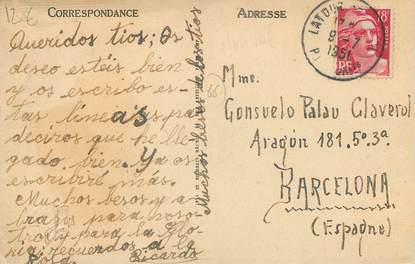 CORRESPONDANCE
Queridos tios; Os
deseo estéis bien
y os escribo es-
tas lineas pa
deciros que he lle-
gado bien. Ya os
escribiré más.
Muchos besos y a-
brazos para voso-
tros y para la Glo-
ria recuerdos a la
Rosa. Ricardo
Muchos besos de los tios
ADRESSE
LATOUR
1951
18F
Mme.
Consuelo Palau Claverol
Aragón 181. 5º 3ª
BARCELONA
(Espagne)